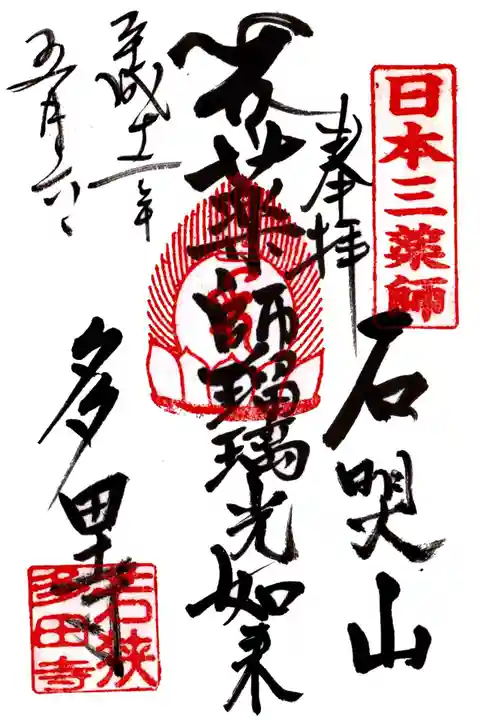 日本三薬師
石照山
奉拝
薬師瑠璃光如来
平成十二年
五月六日
多田寺
若狭
多田寺